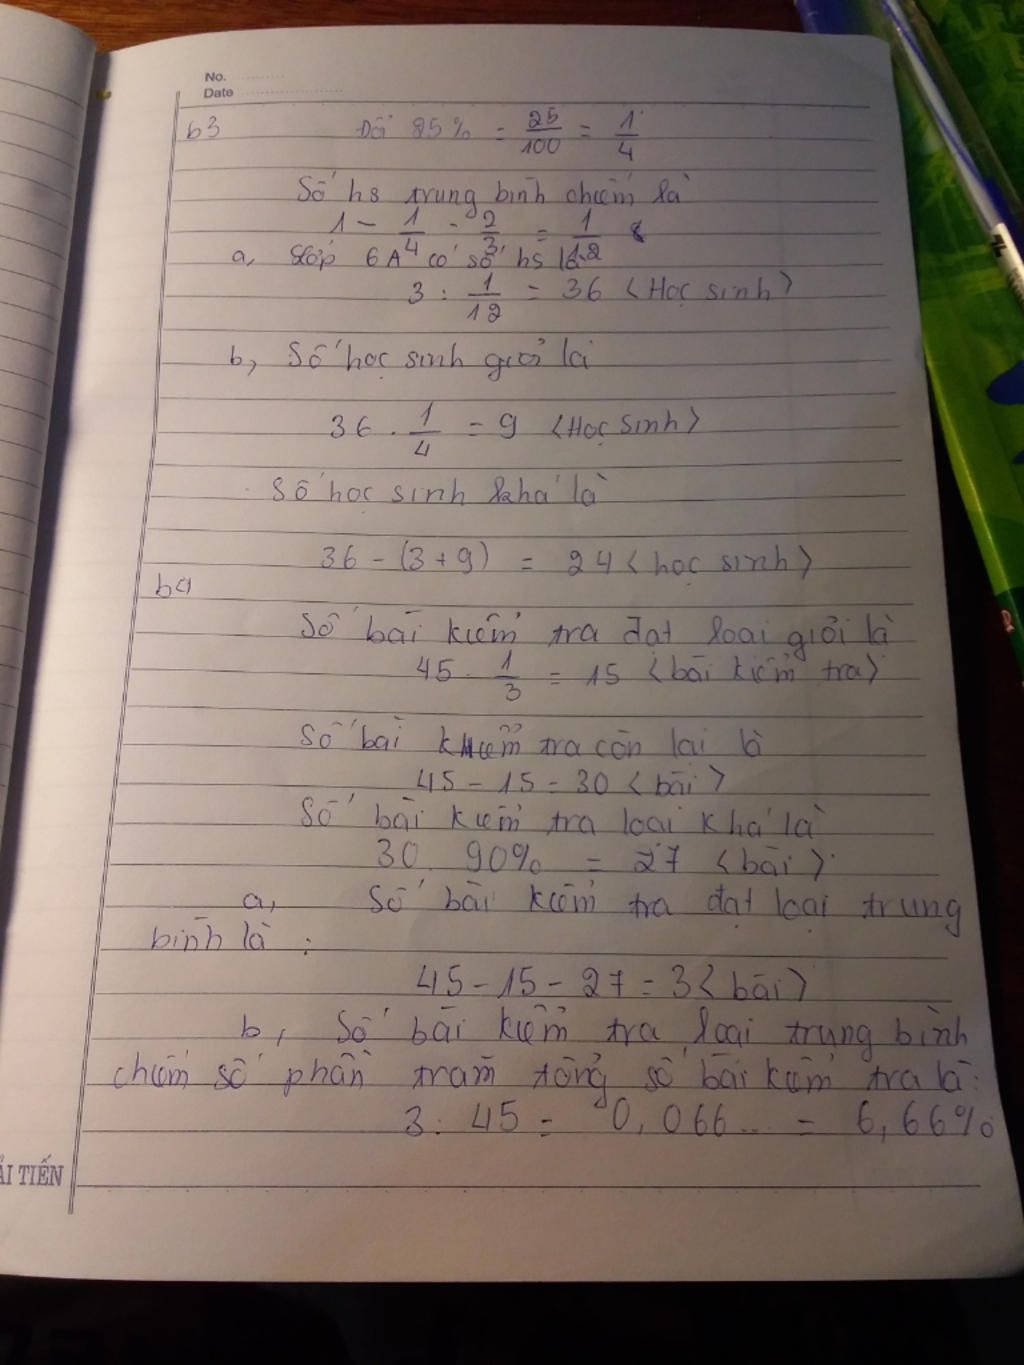 No.
Date
b3 Đổi 25% = 25/100 = 1/4
Số hs trung bình chiếm là
1 - 1/4 - 2/3 = 1/12
a, Lớp 6A có số hs là
3 : 1/12 = 36 <Học sinh>
b, Số học sinh giỏi là
36 . 1/4 = 9 <Học sinh>
Số học sinh khá là
36 - (3 + 9) = 24 <học sinh>
b4
Số bài kiểm tra đạt loại giỏi là
45 . 1/3 = 15 <bài kiểm tra>
Số bài kiểm tra còn lại là
45 - 15 = 30 <bài>
Số bài kiểm tra loại khá là
30 90% = 27 <bài>
a, Số bài kiểm tra đạt loại trung
bình là :
45 - 15 - 27 = 3 <bài>
b, Số bài kiểm tra loại trung bình
chiếm số phần trăm tổng số bài kiểm tra là:
3 : 45 = 0,066... = 6,66%
ẢI TIẾN